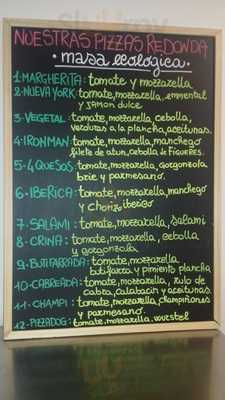 NUESTRAS PIZZAS REDONDA
• masa ecologica •
1-MARGHERITA: tomate y mozzarella
2-NUEVA YORK: tomate, mozzarella, emmental
y JAMON dulce
3-VEGETAL: tomate, mozzarella, cebolla,
verduras a la plancha, aceitunas.
4-IRONMAN: tomate, mozzarella, manchego
filete de atun, cebolla de FIGUERES.
5-4 QUESOS: tomate, mozzarella, gorgonzola
brie y parmesano.
6-IBERICA: tomate, mozzarella, manchego
y chorizo iberico
7-SALAMI: tomate, mozzarella, salami
8-CRINA: tomate, mozzarella, cebolla
y gorgonzola
9-BUTIFARRADA: tomate, mozzarella
butifarra y pimiento plancha
10-CABREADA: tomate, mozzarella, rulo de
cabra, calabacin y aceitunas.
11-CHAMPI: tomate, mozzarella, champiñones
y parmesano.
12-PIZZADOG: tomate, mozzarella, wurstel